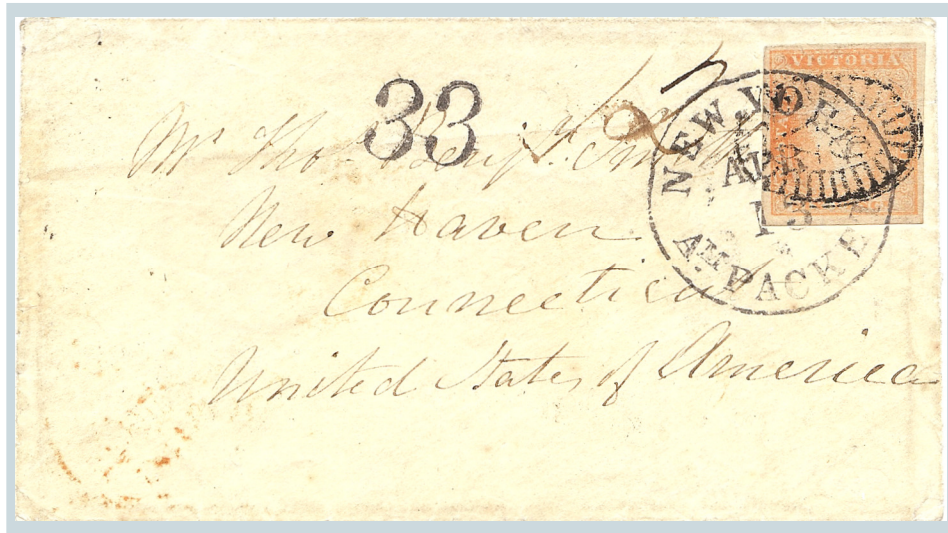 VICTORIA
33
NEW-YORK
APR
13
Am. PACKET
Mr Tho
New Haven
Connecticut
United States of America